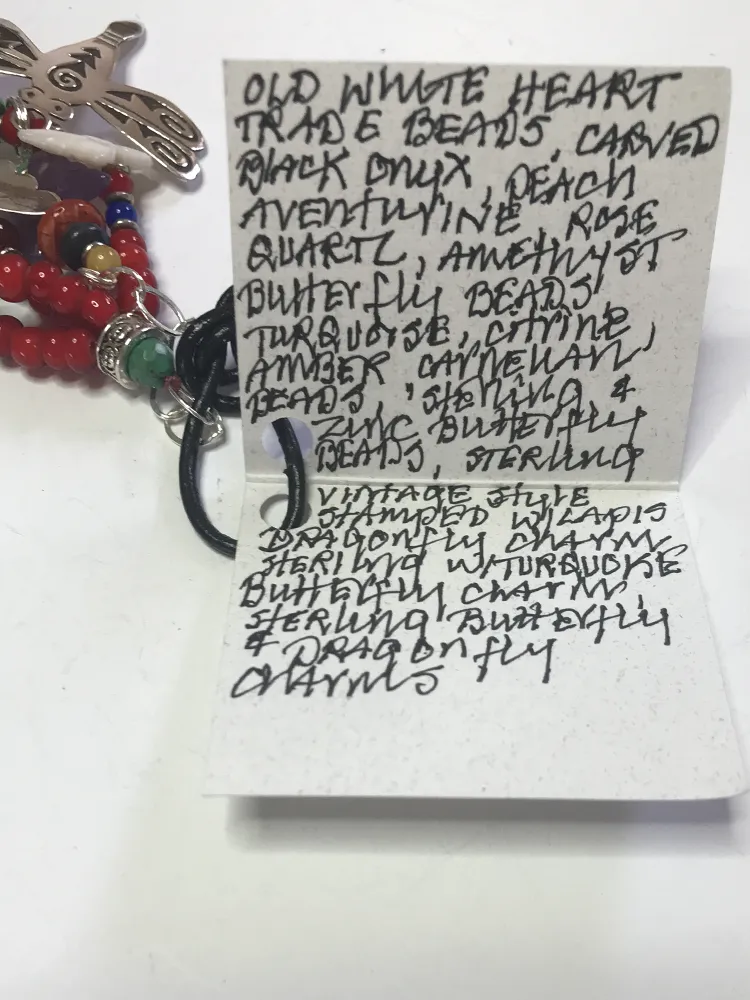 OLD WHITE HEART
TRADE BEADS, CARVED
BLACK ONYX, PEACH
AVENTURINE, ROSE
QUARTZ, AMETHYST
BUTTERFLY BEADS,
TURQUOISE, CITRINE,
AMBER CARNELIAN,
BEADS, STERLING &
ZINC BUTTERFLY
BEADS, STERLING
VINTAGE STYLE
STAMPED W/LAPIS
DRAGONFLY CHARM,
STERLING W/TURQUOISE
BUTTERFLY CHARM,
STERLING BUTTERFLY
& DRAGONFLY
CHARMS